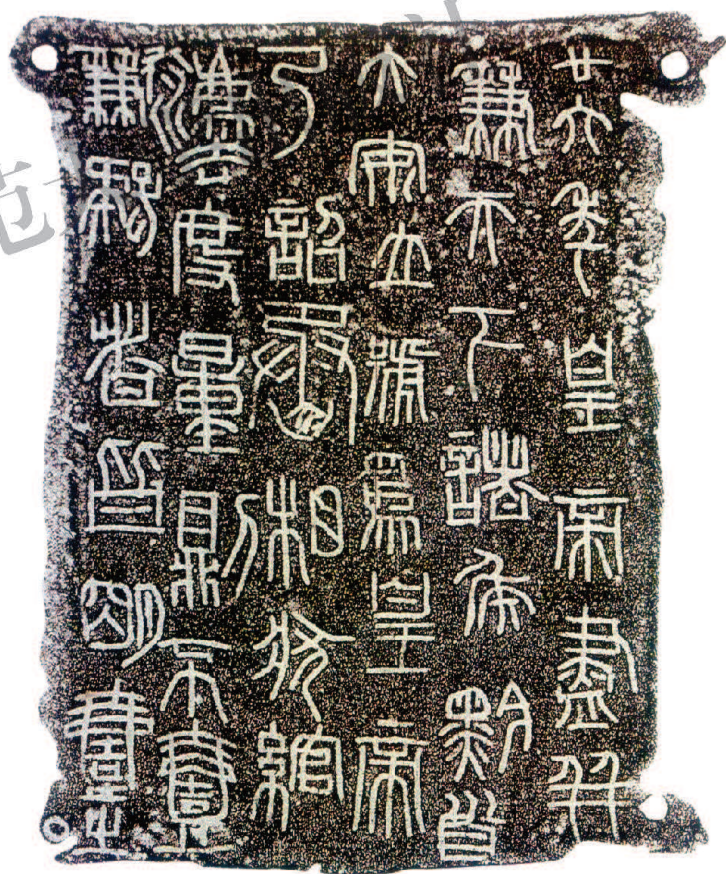 廿六年皇帝盡并
兼天下諸侯黔首
大安立號爲皇帝
乃詔丞相狀綰
灋度量則不壹
歉疑者皆明壹之
范